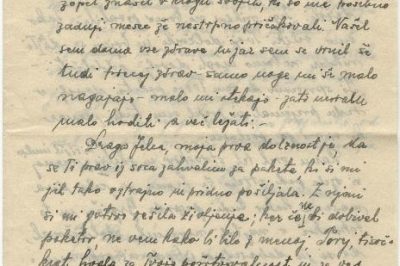 zopet znašel v krogu svojih, ki so me posebno
zadnji mesec že nestrpno pričakovali. Našel
sem doma vse zdrave in jaz sem se vrnil še
tudi precej zdrav – samo noge mi še malo
nagajajo – malo mi otekajo – zato moram
malo hoditi a več ležati. –
Draga Jelca, moja prva dolžnost je, da
se ti prav iz srca zahvalim za pakete ki si mi
jih tako vztrajno in pridno pošiljala. Z njimi
si mi gotovo rešila življenje, ker če ne bi dobival
paketov ne vem kako bi bilo z menoj. Torej tisoč
krat hvala za Tvojo požrtvovalnost in